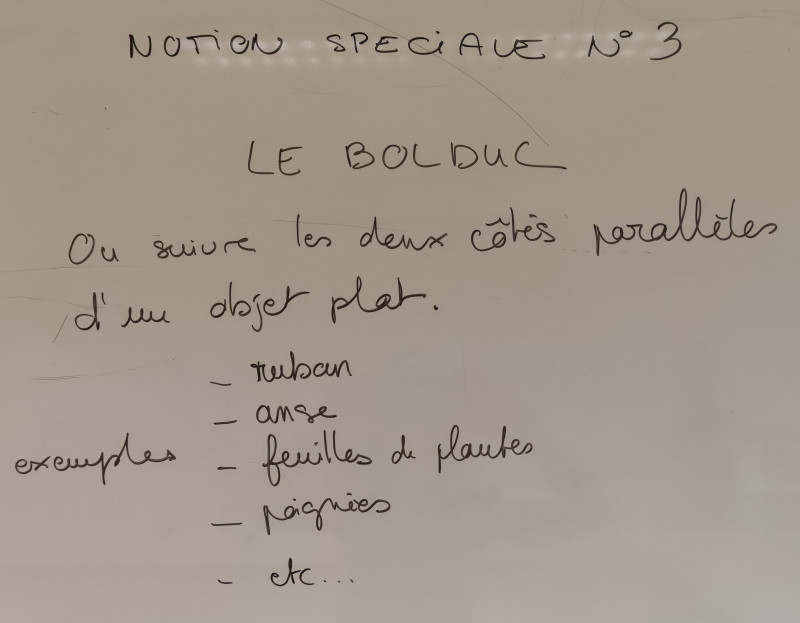 NOTION SPECIALE N° 3
LE BOLDUC
Ou suivre les deux côtés parallèles
d'un objet plat.
- ruban
- anse
exemples - feuilles de plantes
- poignées
- etc...